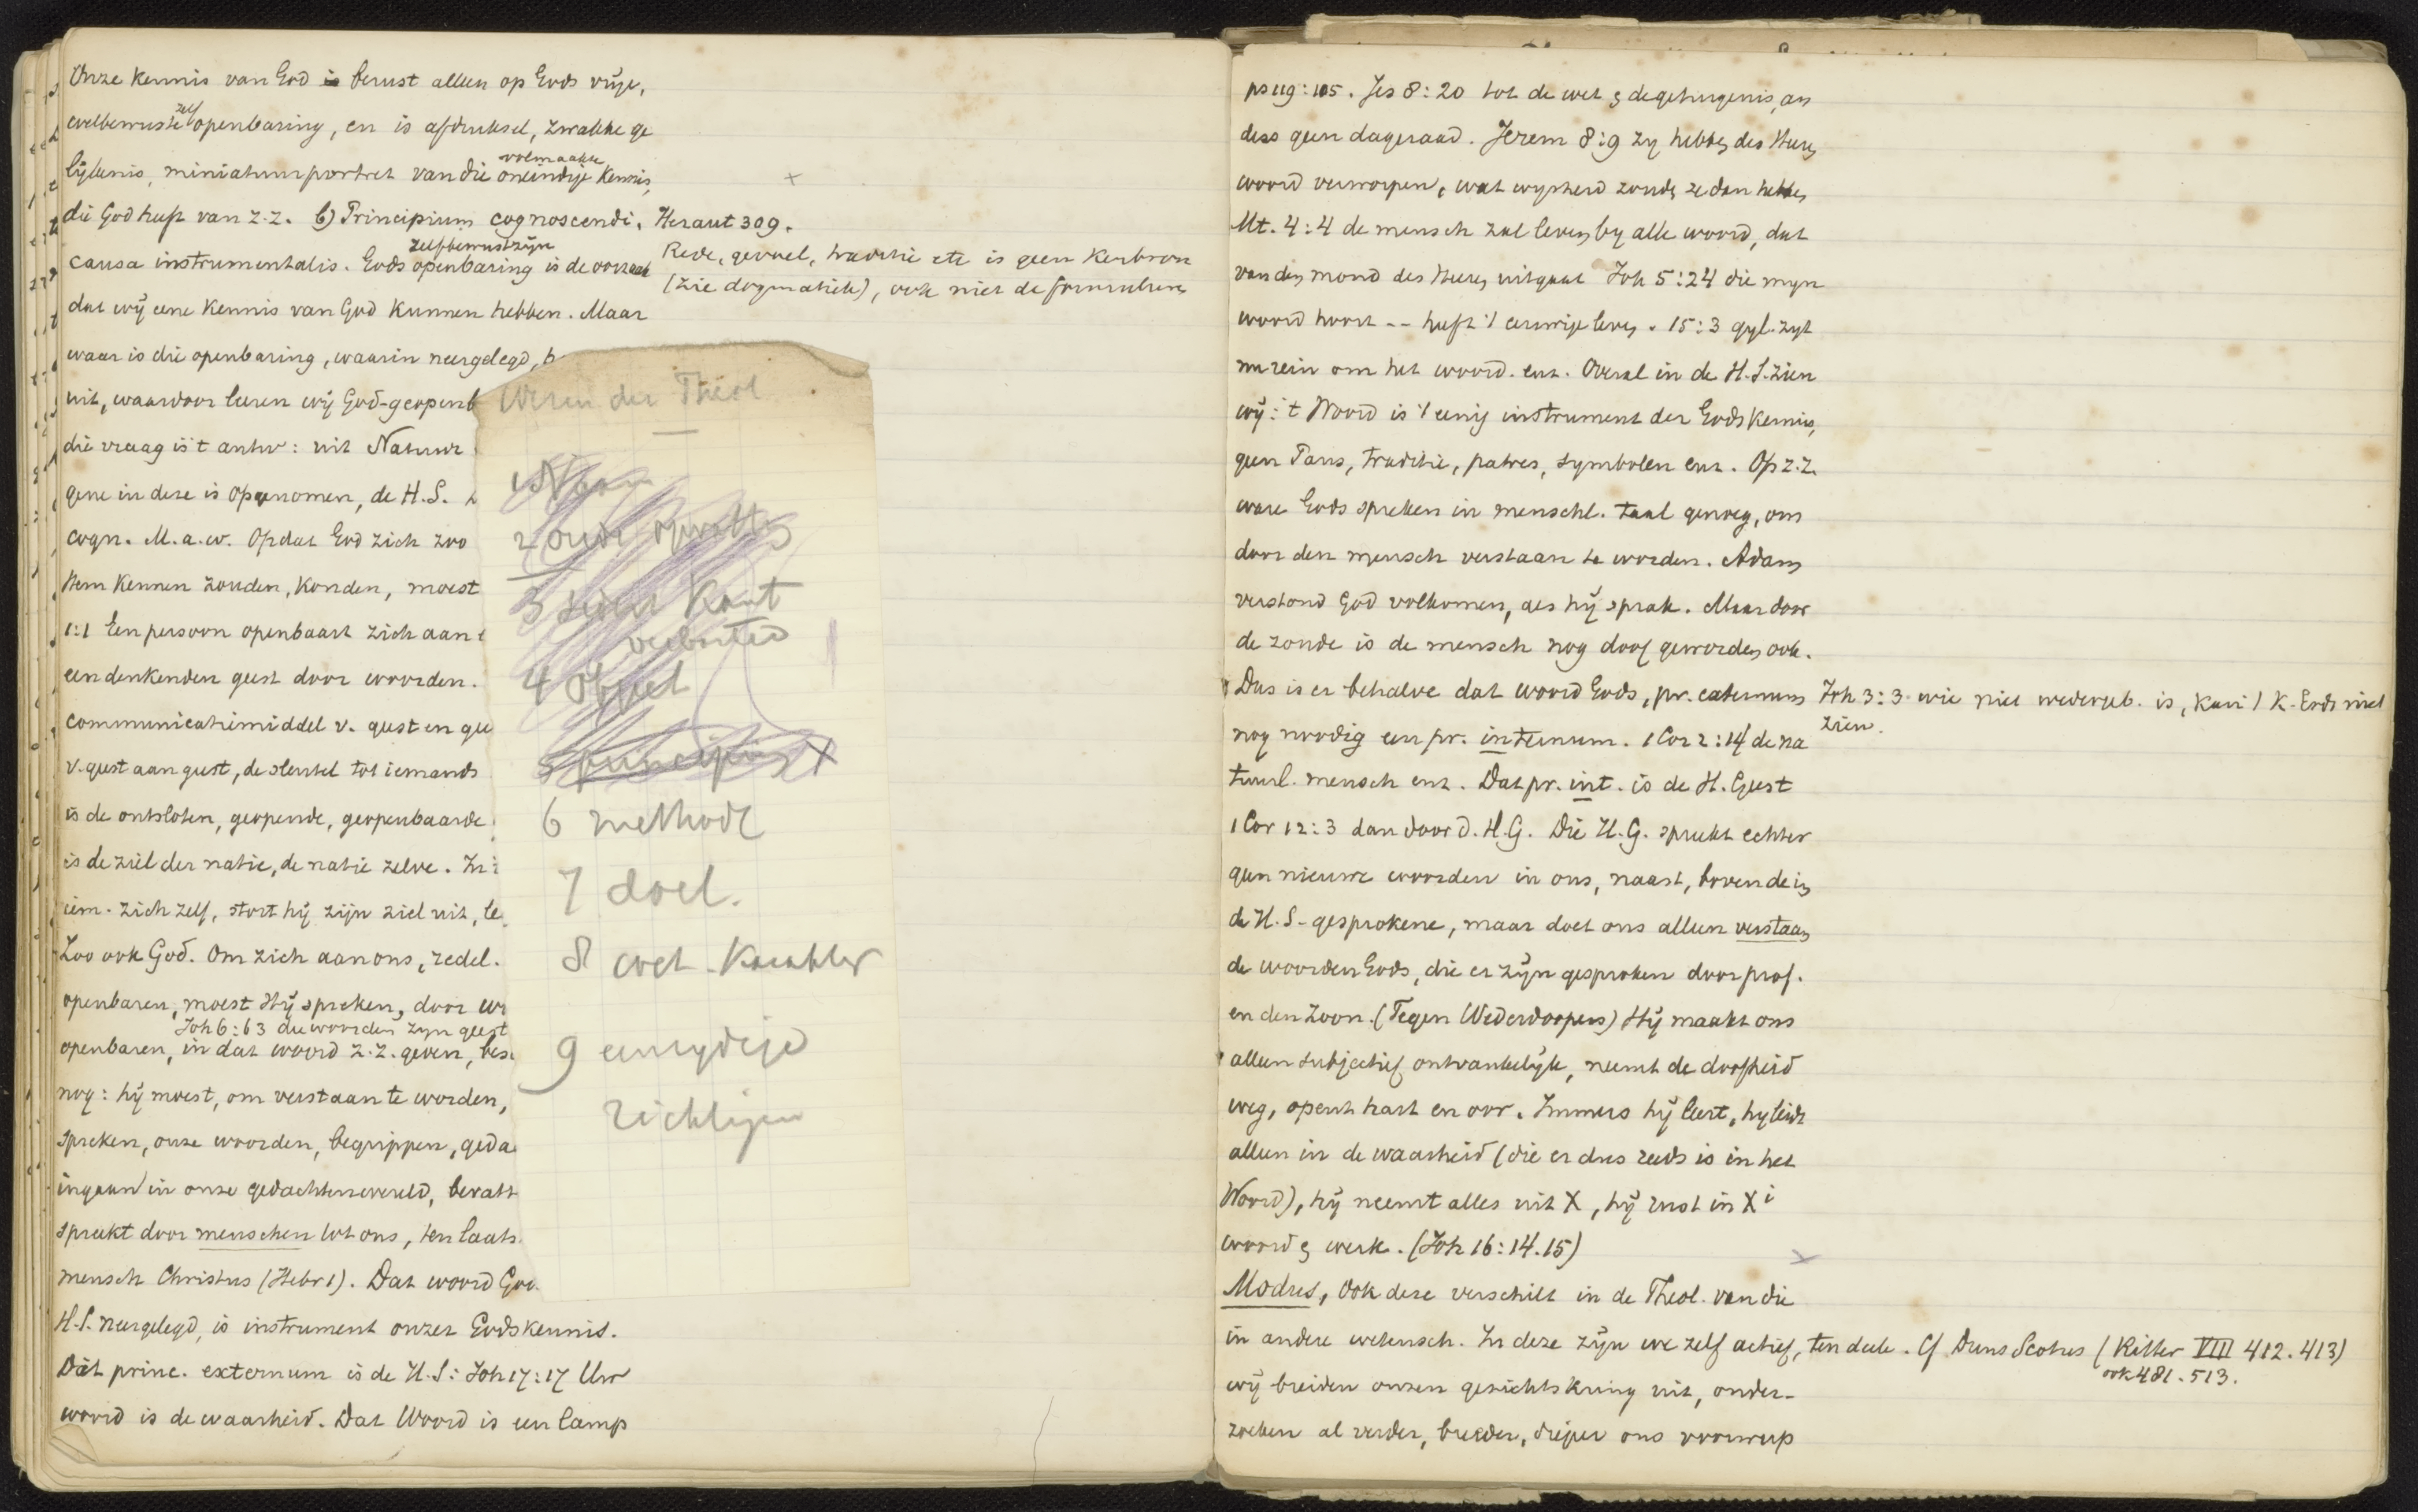 Onze kennis van God is berust alleen op Gods vrije,
welbewuste zelf openbaring, en is afdruksel, zwakke ge
lijkenis, miniatuurportret van die volmaakte oneindige kennis,
die God heeft van z.z. b) Principium cognoscendi.
causa instrumentalis. Gods zelfbewustzijn openbaring is de oorzaak
dat wij eene kennis van God kunnen hebben. Maar
waar is die openbaring, waarin neergelegd,
uit, waardoor leeren wij God-geopenb
die vraag is 't antw: uit Natuur
gene in deze is opgenomen, de H.S.
cogn. M.a.w. Opdat God zich zoo
Hem kennen zouden, konden, moest
1:1 Een persoon openbaart zich aan
een denkenden geest door woorden.
communicatiemiddel v. geest en gee
v. geest aan geest, de sleutel tot iemands
is de ontsloten, geopende, geopenbaarde
is de ziel der natie, de natie zelve. In
iem. zich zelf, stort hij zijn ziel uit, le
Zoo ook God. Om zich aan ons, redel.
openbaren, moest Hij spreken, door wo
Joh 6:63 die woorden zijn geest
openbaren, in dat woord z.z. geven, bes
nog: hij moest, om verstaan te worden,
spreken, onze woorden, begrippen, geda
ingaan in onze gedachtenwereld, bevatt
spreekt door menschen tot ons, ten laats
mensch Christus (Hebr 1). Dat woord God
H.S. neergelegd, is instrument onzer Godskennis.
Dat princ. externum is de H.S: Joh 17:17 Uw
woord is de waarheid. Dat Woord is een lamp
Heraut 309.
Rede, gevoel, traditie etc is geen kenbron
(zie dogmatiek), ook niet de formulieren
Wezen der Theol
1 Naam
2 oude opvatting
3 sedert Kant
verbasterd
4 Object
5 principium X
6 methode
7 doel.
8 wet. Karakter
9 eenzydige
richtingen
ps 119:105. Jes 8:20 tot de wet & de getuigenis, an
ders geen dageraad. Jerem 8:9 zy hebben des Heeren
woord verworpen, wat wysheid zouden ze dan hebben
Mt. 4:4 de mensch zal leven by alle woord, dat
van den mond des Heeren uitgaat Joh 5:24 die myn
woord hoort -- heeft 't eeuwige leven. 15:3 gyl. zyt
nu rein om het woord. enz. Overal in de H.S. zien
wij: 't Woord is 't eenig instrument der Godskennis,
geen Paus, traditie, patres, symbolen enz. Op z.z.
ware Gods spreken in menschl. taal genoeg, om
door den mensch verstaan te worden. Adam
verstond God volkomen, als hij sprak. Maar door
de zonde is de mensch nog doof geworden ook.
Dus is er behalve dat woord Gods, pr. externum
nog noodig een pr. internum. 1 Cor 2:14 de na
tuurl. mensch enz. Dat pr. int. is de H. Geest
1 Cor 12:3 dan door d. H.G. Die H.G. spreekt echter
geen nieuwe woorden in ons, naast, boven de in
de H.S-gesprokene, maar doet ons alleen verstaan
de woorden Gods, die er zijn gesproken door prof.
en den Zoon. (Tegen Wederdoopers) Hij maakt ons
alleen subjectief ontvankelijk, neemt de doofheid
weg, opent hart en oor. Immers hij leert, hy leidt
alleen in de waarheid (die er dus reeds is in het
Woord), hij neemt alles uit X, hij rust in X i
woord & werk. (Joh 16:14.15)
Modus, Ook deze verschilt in de Theol. van die
in andere wetensch. In deze zijn we zelf actief, ten deele.
wij breiden onzen gezichtskring uit, onder-
zoeken al verder, breeder, dieper ons voorwerp
Joh 3:3 wie niet wedergeb. is, kan 't K. Gods niet
zien.
Cf Duns Scotus (Ritter VIII 412. 413)
ook 481. 513.